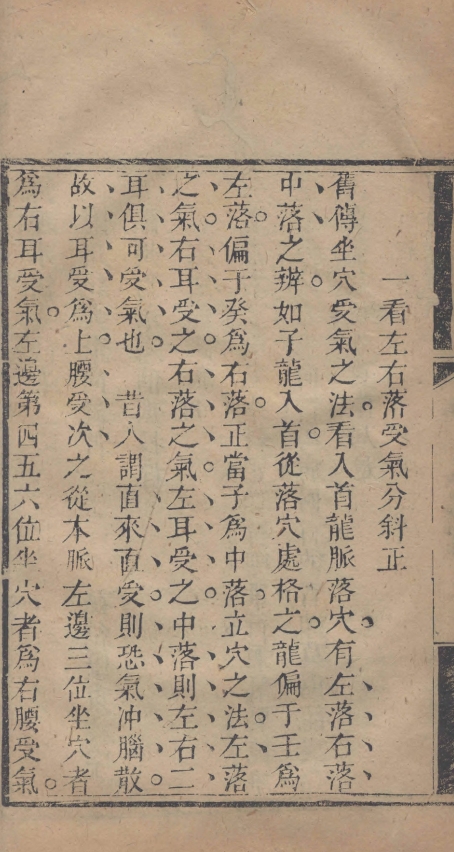 一看左右落受氣分斜正
舊傳坐穴受氣之法看入首龍脈落穴有左落右落
中落之辨如子龍入首從落穴處格之龍偏于壬爲
左落偏于癸爲右落正當子爲中落立穴之法左落
之氣右耳受之右落之氣左耳受之中落則左右二
耳俱可受氣也　昔人謂直來直受則恐氣沖腦散
故以耳受爲上腰受次之從本脈左邊三位坐穴者
爲右耳受氣左邊第四五六位坐穴者爲右腰受氣